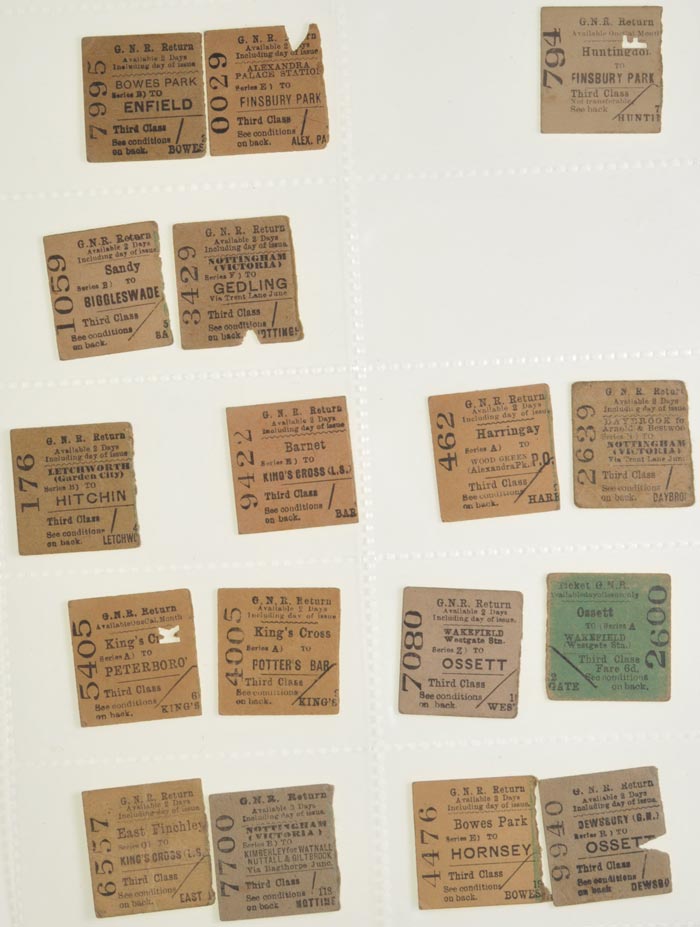 7995
G. N. R. Return
Available 2 Days
Including day of issue
BOWES PARK
Series B) TO
ENFIELD
Third Class /
See conditions
on back. BOWES
0029
G. N. R.
Available 2 Days
Including day of issue
ALEXANDRA
PALACE STATION
Series E) TO
FINSBURY PARK
Third Class /
See conditions
on back. ALEX. PA
794
G.N.R. Return
Available One Cal. Month
Huntingdon
TO
FINSBURY PARK
Third Class
Not transferable
See back
HUNTI
1059
G. N. R. Return
Available 2 Days
Including day of issue.
Sandy
Series B) TO
BIGGLESWADE
Third Class
See conditions
on back. SA
3429
G. N. R. Return
Available 2 Days
Including day of issue.
NOTTINGHAM
(VICTORIA)
Series F) TO
GEDLING
Via Trent Lane June
Third Class
See conditions
on back. OTTING
176
G. N. R. Return
Available 2 Days
Including day of issue
LETCHWORTH
(Garden City)
Series B) TO
HITCHIN
Third Class /
See conditions
on back. LETCHWO
9422
G. N. R. Return
Available 2 Days
Including day of issue.
Barnet
Series E) TO
KING'S CROSS (L.S.)
Third Class
See conditions
on back. BAR
462
G. N. R. Return
Available 2 Days
Including day of issue
Harringay
Series A) TO
WOOD GREEN
(Alexandra Pk.) P.O.
Third Class
See conditions
on back. HARR
2639
G. N. R. Return
Available 2 Days
Including day of issue
DAYBROOK for
Arnold & Bestwood
TO
NOTTINGHAM
(VICTORIA)
Via Trent Lane June
Third Class
See conditions
on back. DAYBROO
5405
G.N.R. Return
Available One Cal. Month
King's Cr
Series A) TO
PETERBORO'
Third Class
See conditions
on back. KING'S
4005
G. N. R. Return
Available 2 Days
Including day of issue
King's Cross
Series A) TO
POTTER'S BAR
Third Class
See conditions
on back. KING'S
7080
G.N.R. Return
Available 2 Days
Including day of issue.
WAKEFIELD
Westgate Stn.
Series Z) TO
OSSETT
Third Class
See conditions
on back. WES
2600
Ticket G.N.R.
Available day of issue only
Ossett
TO (Series A
WAKEFIELD
(Westgate Stn.)
Third Class
Fare 6d.
See conditions
GATE on back.
6557
G. N. R. Return
Available 2 Days
Including day of issue
East Finchley
Series O) TO
KING'S CROSS (L.S.
Third Class
See conditions
on back. EAST
7700
G. N. R. Return
Available 2 Days
Including day of issue
NOTTINGHAM
(VICTORIA)
Series E) TO
KIMBERLEY for WATNALL
NUTTALL & GILTBROOK
Via Basthorpe June.
Third Class
See conditions
on back NOTTING
4476
G. N. R. Return
Available 2 Days
Including day of issue.
Bowes Park
Series E) TO
HORNSEY
Third Class
See conditions
on back. BOWES
9940
G. N. R. Return
Available 2 Days
Including day of issue
DEWSBURY (G.N.)
Series R) TO
OSSETT
Third Class
See conditions
on back. DEWSBO